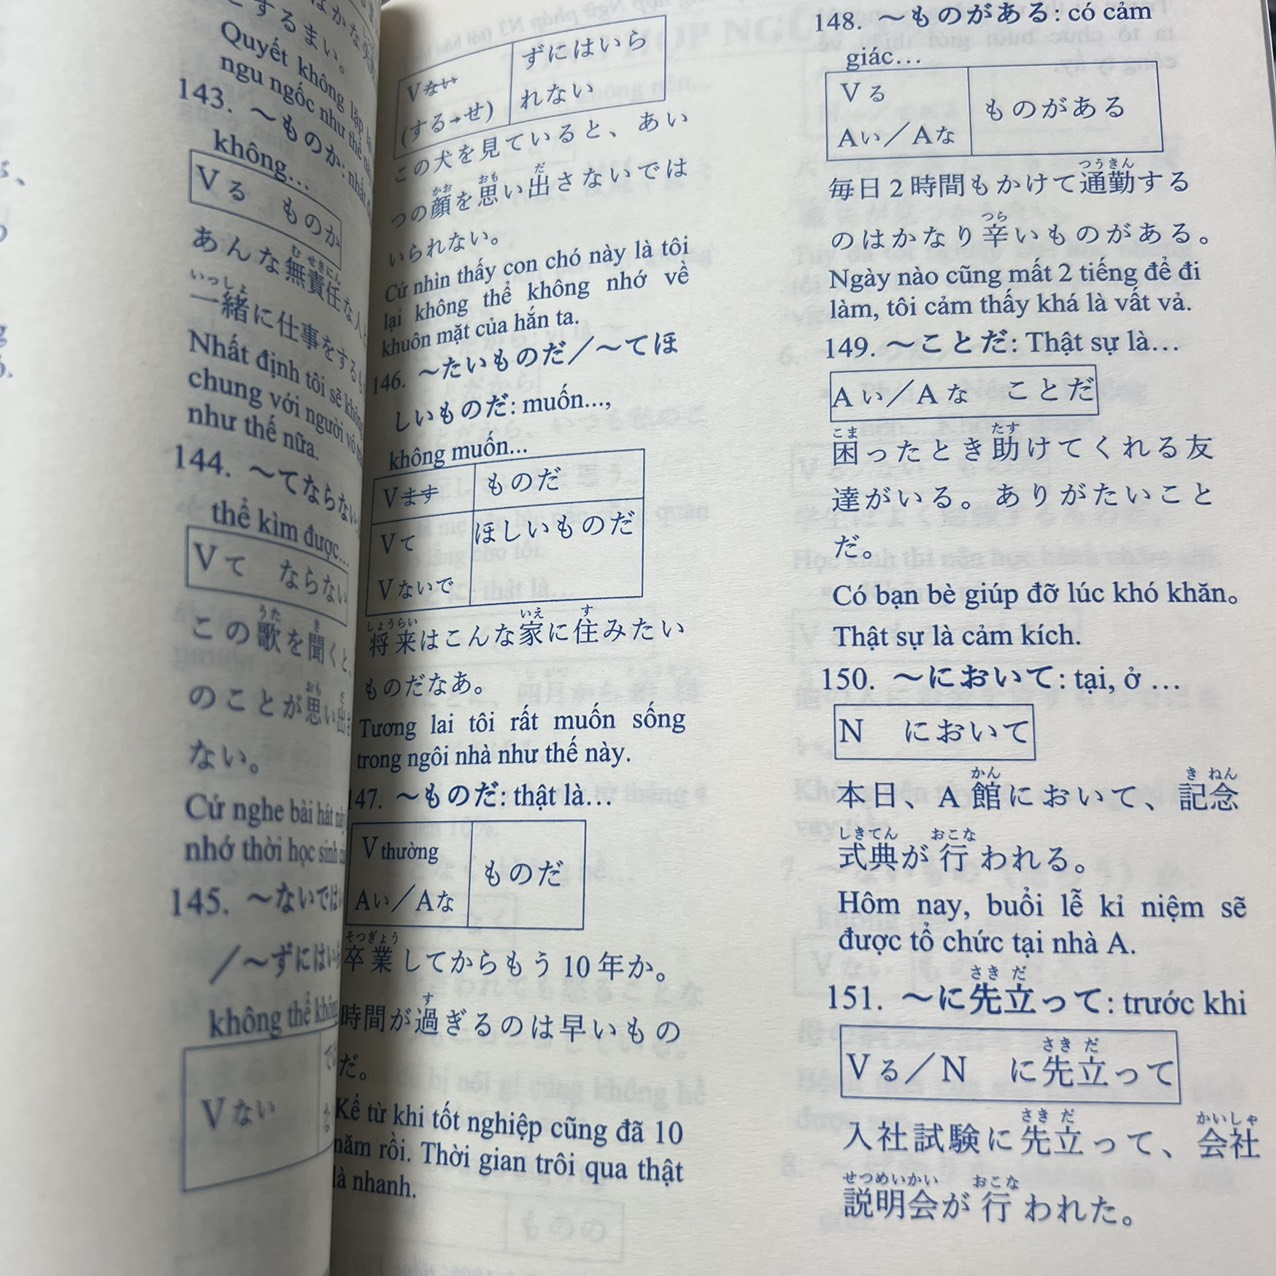 とするまい。
Quyết không lặp
ngu ngốc như thế
143. ～ものか: nhất
không...
Vる ものか
あんな無責任な人
一緒に仕事をする
Nhất định tôi sẽ không
chung với người vô
như thế nữa.
144. ～てならない
thể kìm được...
Vて ならない
この歌を聞くと、
のことが思い出
ない。
Cứ nghe bài hát này
nhớ thời học sinh
145. ～ないでは
／～ずにはいら
không thể không
Vない
Vない ずにはいら
(する→せ) れない
この犬を見ていると、あい
つの顔を思い出さないでは
いられない。
Cứ nhìn thấy con chó này là tôi
lại không thể không nhớ về
khuôn mặt của hắn ta.
146. ～たいものだ／～てほ
しいものだ: muốn...,
không muốn...
Vます ものだ
Vて ほしいものだ
Vないで
将来はこんな家に住みたい
ものだなあ。
Tương lai tôi rất muốn sống
trong ngôi nhà như thế này.
147. ～ものだ: thật là...
V thường
Aい／Aな ものだ
卒業してからもう10年か。
時間が過ぎるのは早いもの
だ。
Kể từ khi tốt nghiệp cũng đã 10
năm rồi. Thời gian trôi qua thật
là nhanh.
148. ～ものがある: có cảm
giác...
Vる ものがある
Aい／Aな
毎日2時間もかけて通勤する
のはかなり辛いものがある。
Ngày nào cũng mất 2 tiếng để đi
làm, tôi cảm thấy khá là vất vả.
149. ～ことだ: Thật sự là...
Aい／Aな ことだ
困ったとき助けてくれる友
達がいる。ありがたいこと
だ。
Có bạn bè giúp đỡ lúc khó khăn。
Thật sự là cảm kích.
150. ～において: tại, ở ...
N において
本日、A館において、記念
式典が行われる。
Hôm nay, buổi lễ kỉ niệm sẽ
được tổ chức tại nhà A.
151. ～に先立って: trước khi
Vる／N に先立って
入社試験に先立って、会社
説明会が行われた。